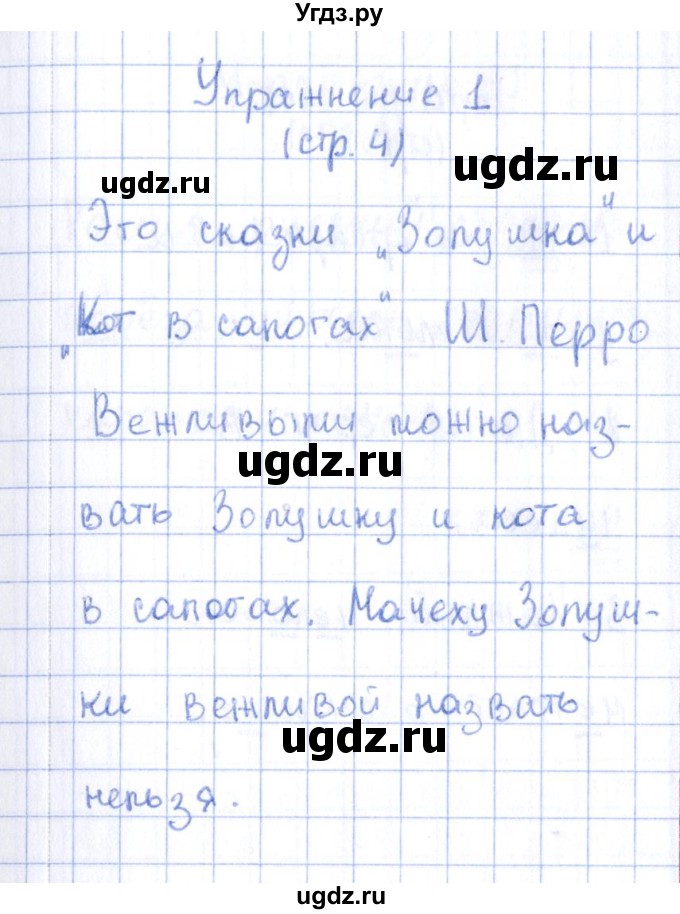 Угдз.ру
Упражнение 1
(стр. 4)
ugdz.ru
ugdz.ru
Это сказки „Золушка" и
„Кот в сапогах" Ш. Перро
Вежливыми можно наз-
ugdz.ru
вать Золушку и кота
в сапогах. Мачеху Золуш-
ки вежливой назвать
ugdz.ru
нельзя.
ugdz.ru